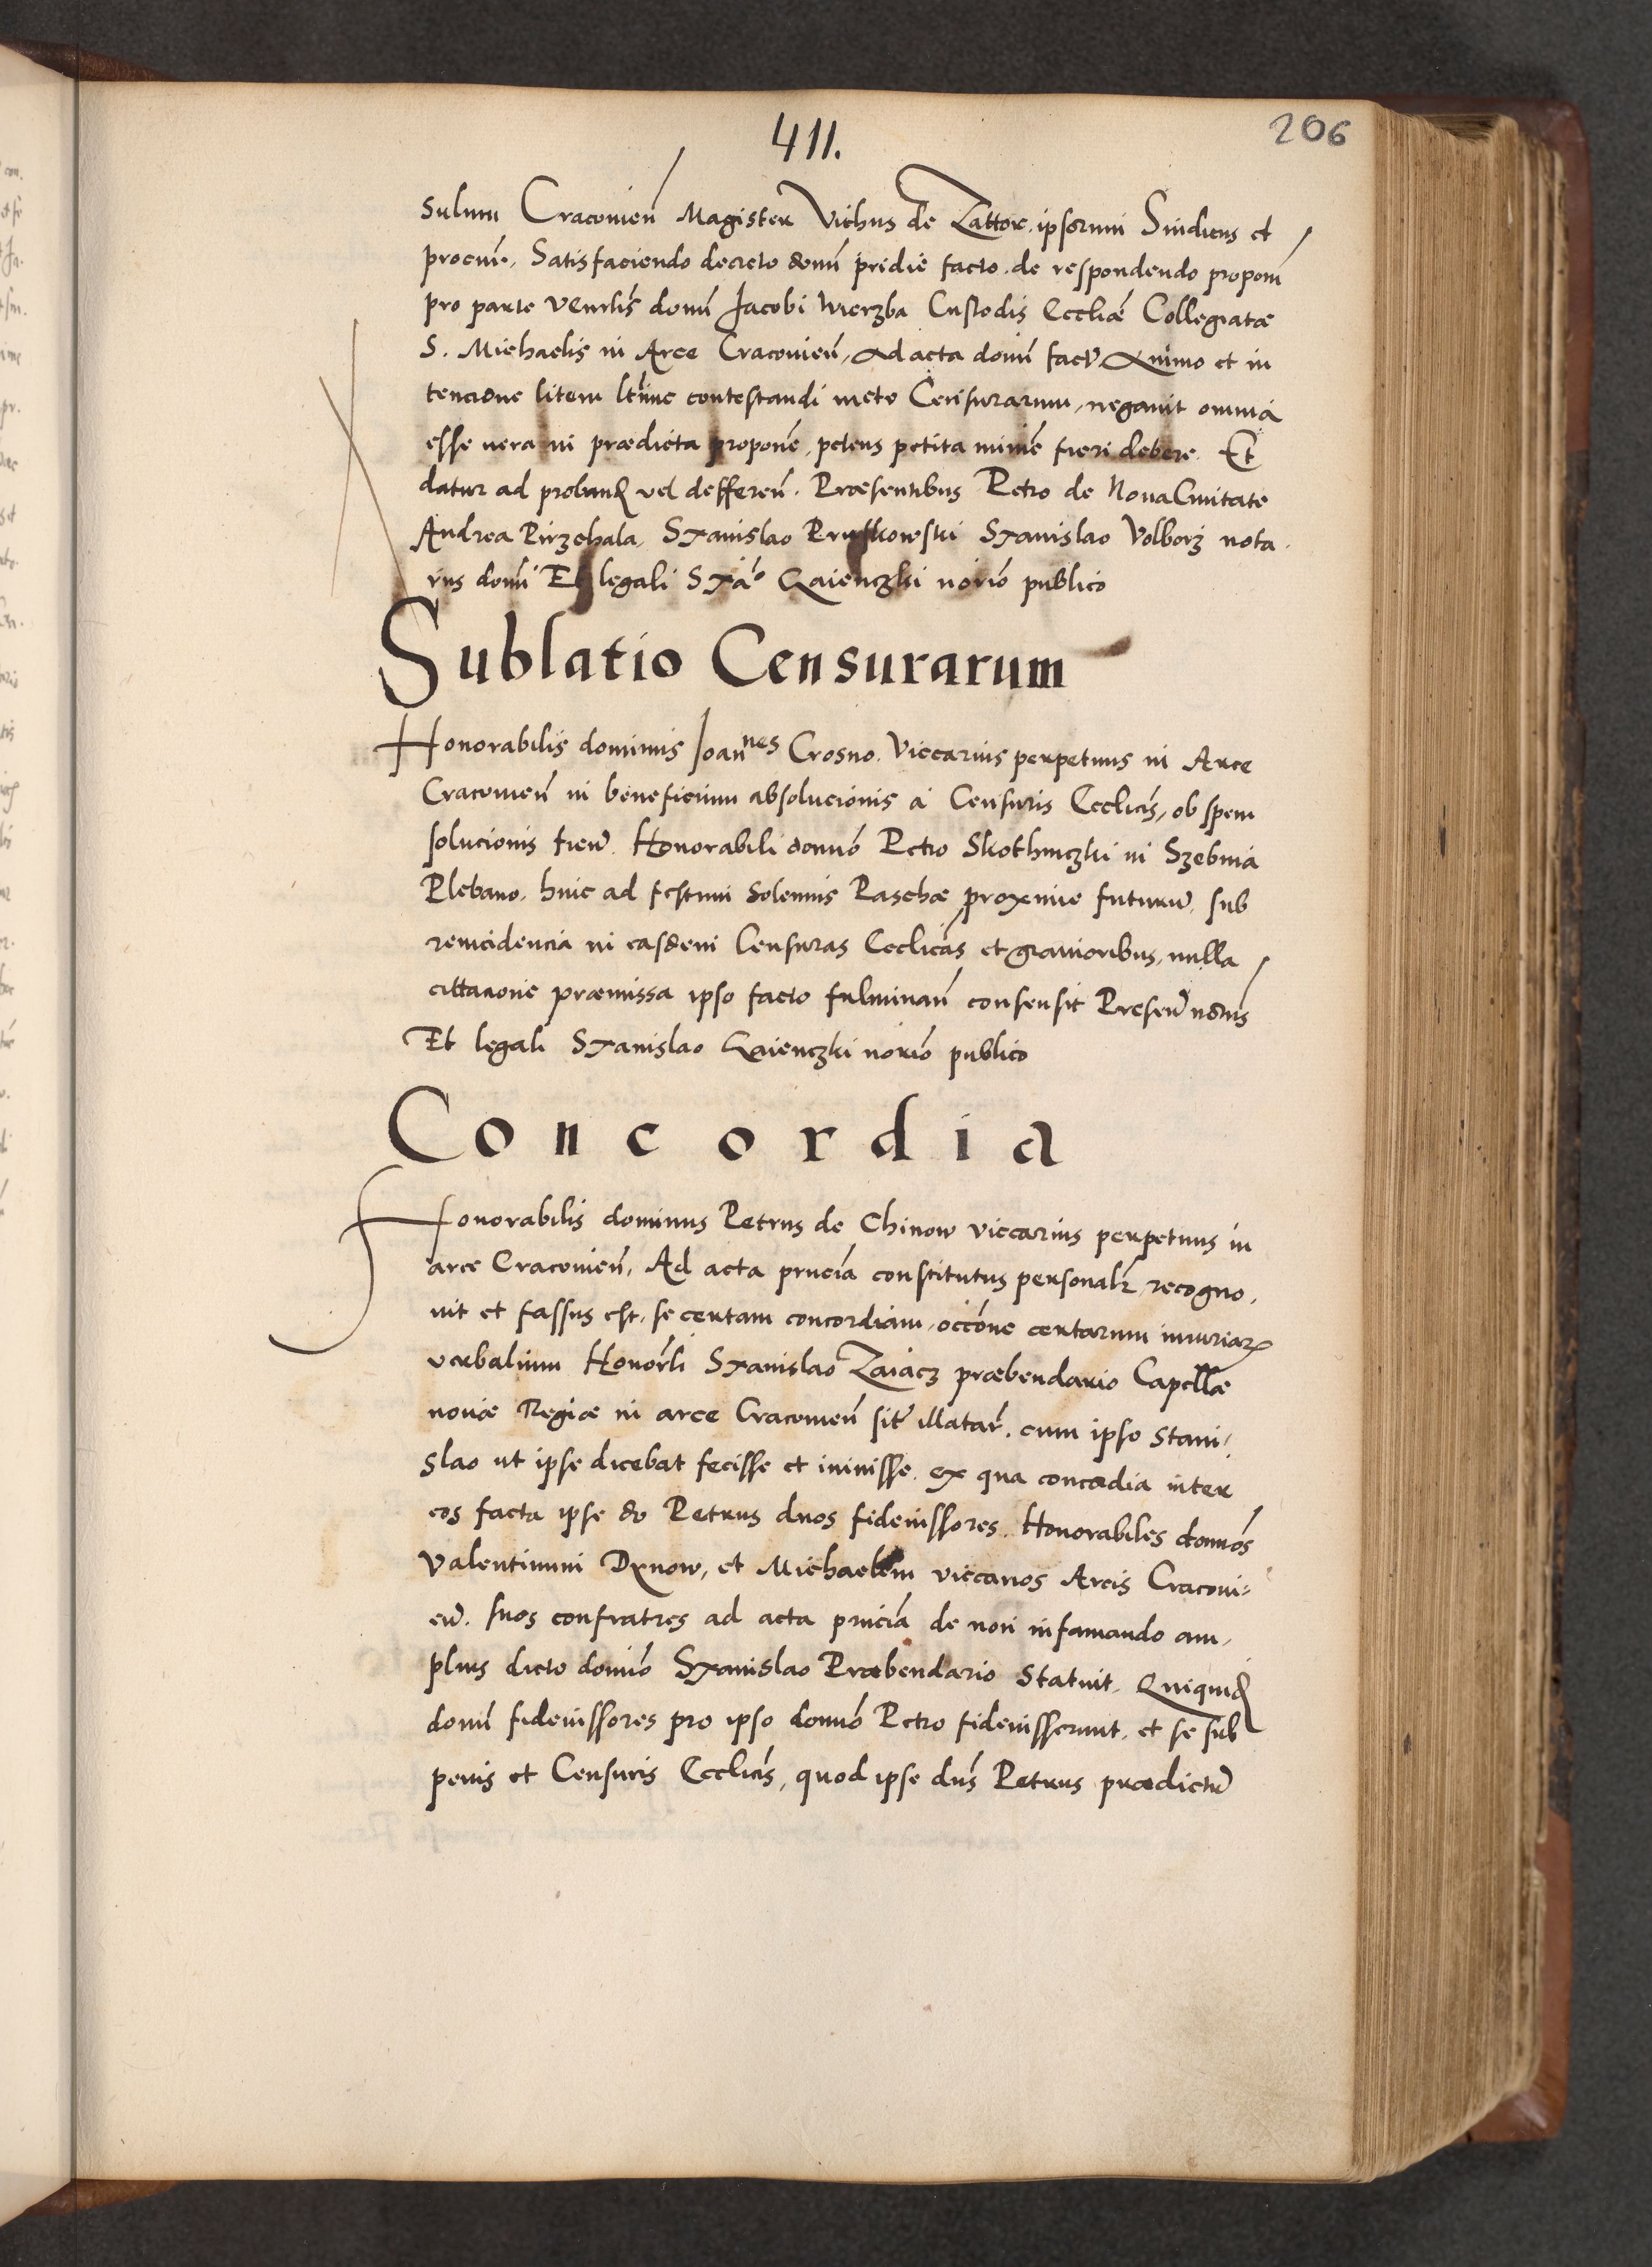 411.
206
sulum Cracovien̄ Magister Vithus de Zattor. ipsorum Sindicus et
procur̄. Satisfaciendo decreto domī pridie facto. de respondendo propom̄
pro parte Venrlis domī Jacobi Wierzba Custodis Eccliae Collegiatae
S. Michaelis in Arce Cracovien̄, Ad acta domī factr̄ Animo et in
tencione litem ltime contestandi meto Censurarum, negavit omnia
esse vera in praedicta propone, petens petita minime fieri debere. Et
datur ad proband vel defferen̄. Praesentibus Petro de Nova Civitate
Andrea Pirzchala, Stanislao Pruskowski Stanislao Volborz nota
rius domī Et legali Stao Gaienczki norio publico
Sublatio Censurarum
Honorabilis dominus Joannes Crosno. Viccarius perpetuus in Arce
Cracovien̄ in beneficium absolucionis a Censuris Ecclicis, ob spem
solucionis fien̄. Honorabili domō Petro Skothniczki in Szebnia
Plebano. huic ad festum Solennis Paschae proxime futurū. sub
reincidencia in easdem Censuras Ecclicas et gravioribus, nulla
cittacione praemissa ipso facto fulminan̄ consensit Presen̄
Et legali Stanislao Gaienczki norio publico
Concordia
Honorabilis dominus Petrus de Chinow viccarius perpetuus in
arce Cracovien̄, Ad acta prncia constitutus personalr recogno,
vit et fassus est, se certam concordiam, occōne certarum iniuriar
verbalium Honorli Stanislao Zaiacz praebendario Capellae
novae Regiae in arce Cracovien̄ sitr̄ illatar̄. cum ipso Stani,
slao ut ipse dicebat fecisse et iniuisse. ex qua concordia inter
eos facta ipse do Petrus duos fideiussores. Honorabiles domōs
Valentinum Dxnow, et Michaelem viccarios Arcis Cracovi=
en̄. suos confratres ad acta prncia de non infamando am,
plius dicto domīo Stanislao Praebendario statuit. Quiquid
domī fideiussores pro ipso domō Petro fideiusserunt, et se sub
penis et Censuris Ecclicis, quod ipse dns Petrus praedictū